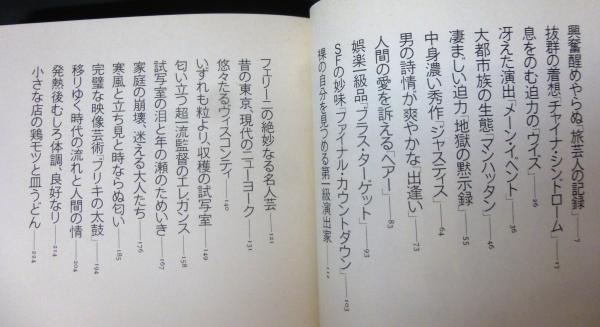 興奮醒めやらぬ「旅芸人の記録」——7
抜群の着想「チャイナ・シンドローム」——17
息をのむ迫力の「ウイズ」——26
冴えた演出「メーン・イベント」——36
大都市族の生態「マンハッタン」——46
凄まじい迫力「地獄の黙示録」——55
中身濃い秀作「ジャスティス」——64
男の詩情が爽やかな「出逢い」——73
人間の愛を訴える「ヘアー」——83
娯楽一級品「ブラス・ターゲット」——93
SFの妙味「ファイナル・カウントダウン」——103
裸の自分を見つめる第一級演出家——112
フェリーニの絶妙なる名人芸——121
昔の東京、現代のニューヨーク——131
悠々たるヴィスコンティ——140
いずれも粒より、収穫の試写室——149
匂い立つ超一流監督のエレガンス——158
試写室の泪と年の瀬のためいき——167
家庭の崩壊、迷える大人たち——176
寒風と立ち見と時ならぬ匂い——185
完璧な映像芸術「ブリキの太鼓」——194
移りゆく時代の流れと人間の情——204
発熱後むしろ体調、良好なり——214
小さな店の鶏モツと皿うどん——224